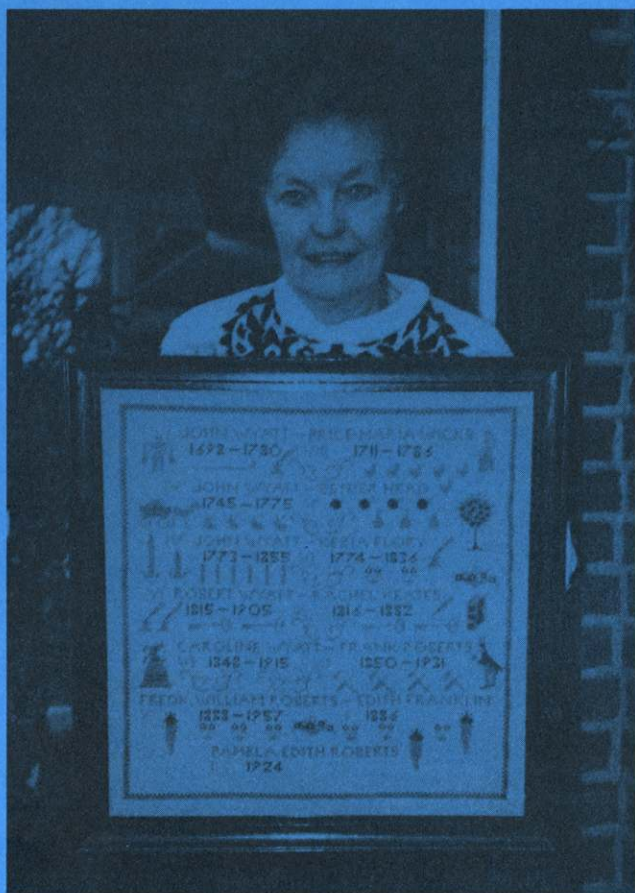 JOHN WYATT – PRICE MARIA WICKS
1692–1780 1711–1786
JOHN WYATT – ESTHER HERD
1745–1775
JOHN WYATT – KERIA FLORY
1773–1855 1774–1836
ROBERT WYATT – RACHEL
1815–1905 1816–1882
CAROLINE WYATT – FRANK ROBERTS
1848–1915 1850–1931
FREDK WILLIAM ROBERTS – EDITH FRANKLIN
1888–1957 1886
PAMELA EDITH ROBERTS
1924